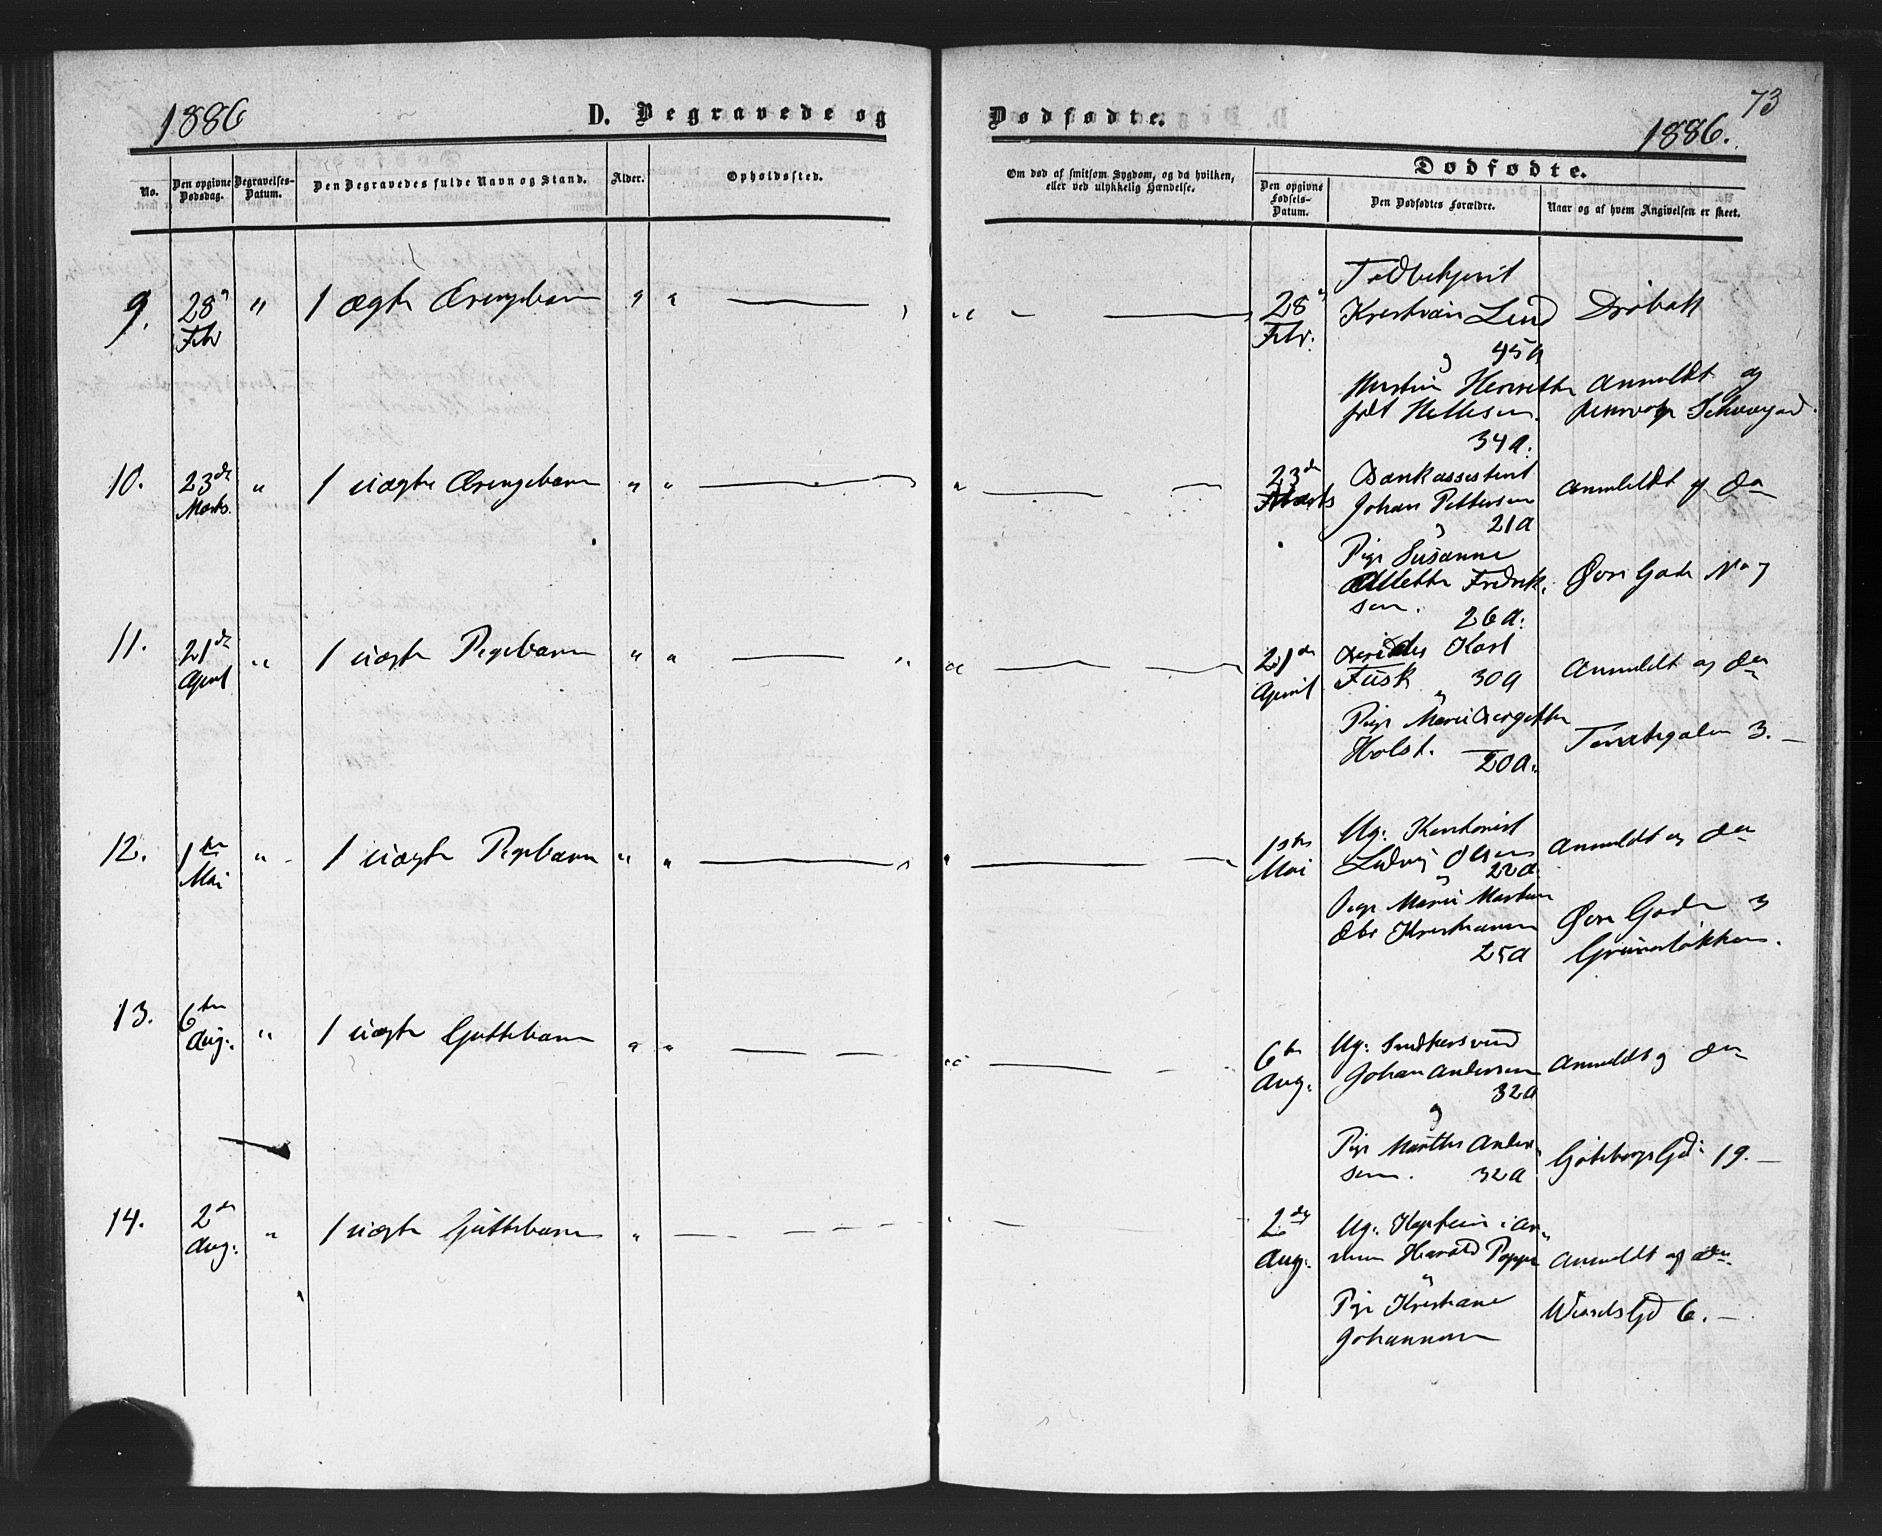 1886
D. Begravede og
Dødfødte.
73
1886.
No.
Den opgivne Dødsdag.
Begravelses-Datum.
Den Begravedes fulde Navn og Stand.
Alder.
Opholdssted.
Om død af smitsom Sygdom, og da hvilken, eller ved ulykkelig Hændelse.
Dødfødte.
Den opgivne Fødsels-Datum.
Den Dødfødtes Forældre.
Naar og af hvem Angivelsen er skeet.
9.
28
Febr
"
1 ægte Drengebarn
"
"
28
Febr.
Toldbetjent
Kristian Lund
45 A
Hustru
født
34 A.
Drøbak
Anmeldt af
10.
23de
Marts.
"
1 uægte Drengebarn
"
"
23de
Marts
Bankassistent
Johan Pettersen
21 A
Pige Susanne
Fredrik-
sen.
26 A.
Anmeldt af Do
Øvre Gade No 7
11.
21de
April
"
1 uægte Pigebarn
"
"
21de
April
Karl
Fusk 30 A
Pige Marie
Holst.
20 A.
Anmeldt af Do
3. —
12.
1ste
Mai
"
1 uægte Pigebarn
"
"
1ste
Mai
Ug: Kontorist
Ludvig Olsen
22 A.
Pige Marie
25 A
Anmeldt af Do
Øvre Gade 3
Grünerløkken.
13.
6te
Aug:
"
1 uægte Guttebarn
"
"
6te
Aug:
Ug: Snedkersvend
Johan Andersen
32 A
og
Pige Marthe Ander-
sen. 32 A
Anmeldt af Do
Göteborg Gd: 19. —
14.
2de
Aug:
"
1 uægte Guttebarn
"
2de
Aug:
Ug: Kaptein i Ar-
meen Harald
Pige Kristiane
Johannesen
Anmeldt af Do
Wessels Gd 6. —